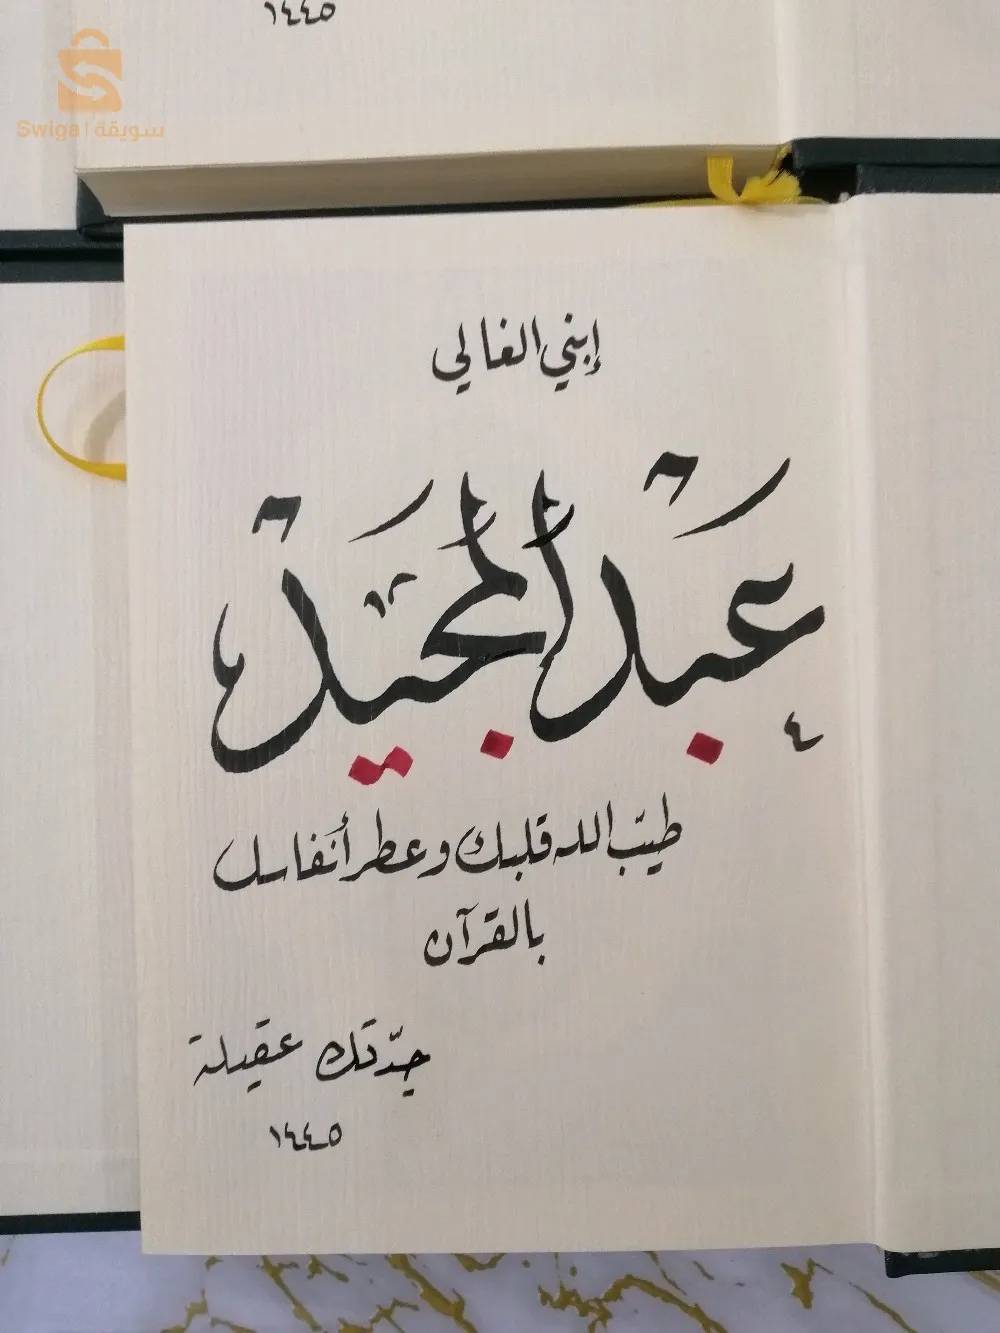 ١٤٤٥
Swiga | سويقة
إبني الغالي
عَبْدُ المجَيدْ
طيّب الله قلبك وعطر أنفاسك
بالقرآن
جدّتك عقيلة
١٤٤٥